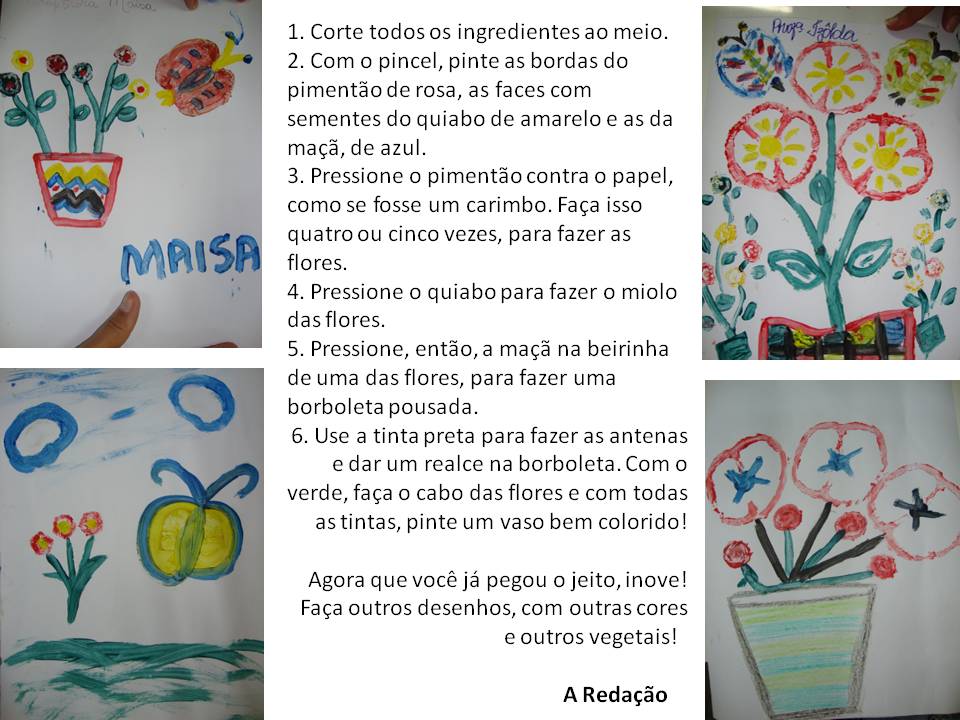 Maisa
MAISA
1. Corte todos os ingredientes ao meio.
2. Com o pincel, pinte as bordas do
pimentão de rosa, as faces com
sementes do quiabo de amarelo e as da
maçã, de azul.
3. Pressione o pimentão contra o papel,
como se fosse um carimbo. Faça isso
quatro ou cinco vezes, para fazer as
flores.
4. Pressione o quiabo para fazer o miolo
das flores.
5. Pressione, então, a maçã na beirinha
de uma das flores, para fazer uma
borboleta pousada.
6. Use a tinta preta para fazer as antenas
e dar um realce na borboleta. Com o
verde, faça o cabo das flores e com todas
as tintas, pinte um vaso bem colorido!
Agora que você já pegou o jeito, inove!
Faça outros desenhos, com outras cores
e outros vegetais!
A Redação